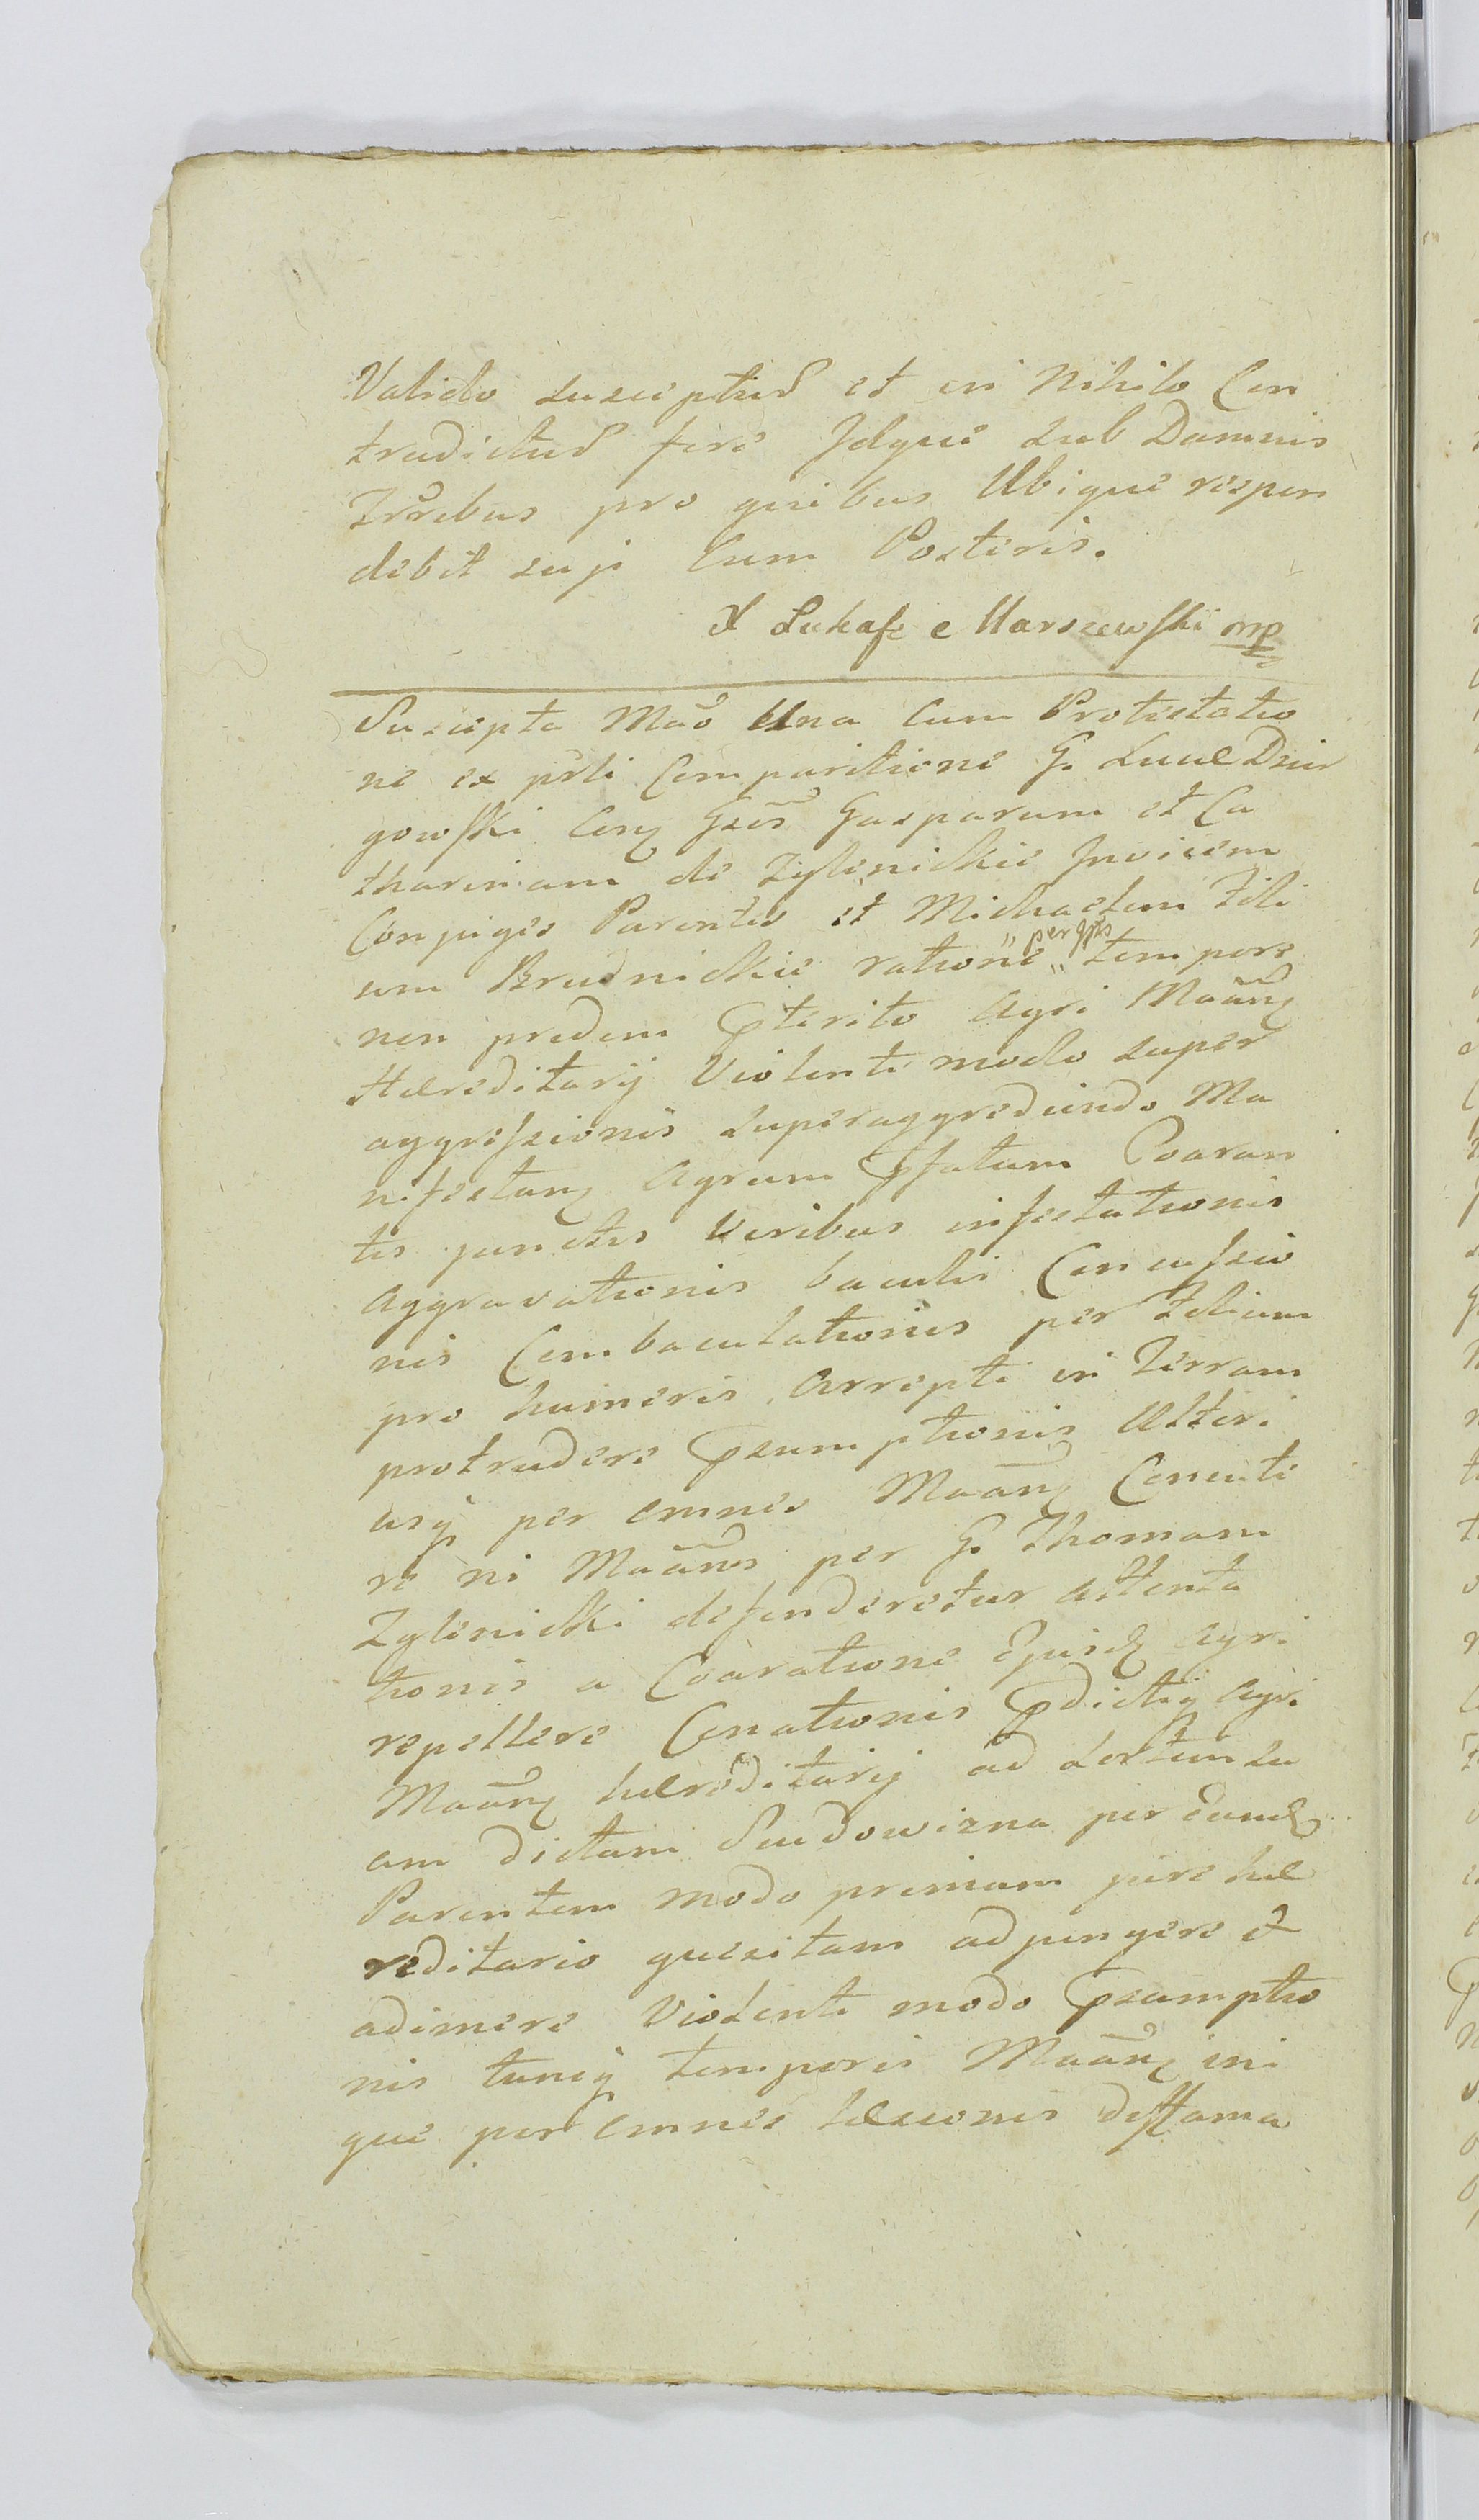 Valido suscepturū et in Nihilo Con
tradicturū fore Idque sub Damnis
Trr̄ibus pro quibus Ubique respon
debit suji Cum Posteris.
X Lukasz e Marszewski mp
Suscepta Māo Una Cum Protestatio
ne ex pr̄ti Comparitione G. Lucae Dnir
gowski Conq Gsōs Gasparum et Ca
tharinam de Zylenickie Invicem
Conjuges Parentes et Michaelem Fili
um Brudnickie ratione " per Ipſos " tempore
non pridem Pterito Agri Māānq
Haereditarÿ Violenti modo super
aggreſsionis superaggrediendo Ma
nifestanq Agrum Pfatum Coaran
tis junctis Viribus infestationis
Aggravationis baculis Concuſsio
nis Combaculationis per Filium
pro humeris Arrepti in Terram
protrudere Psumptionis Ulteri
usq per omnes Māānq Concute
re ni Māāns per G. Thomam
Zylenicki defenderetur Attenta
tionis a Coaratione Ejusdq Agri
repellere Conationis Pdictiq Agri
Māānq haereditarij ad Sortem su
am dictam Sendowizna per Eundq
Parentem modo primam jure hae
reditario quesitam adjungere &
adimere Violenti modo Psumptio
nis tunq temporis Māānq ini
que per Omnes laesionis diffama